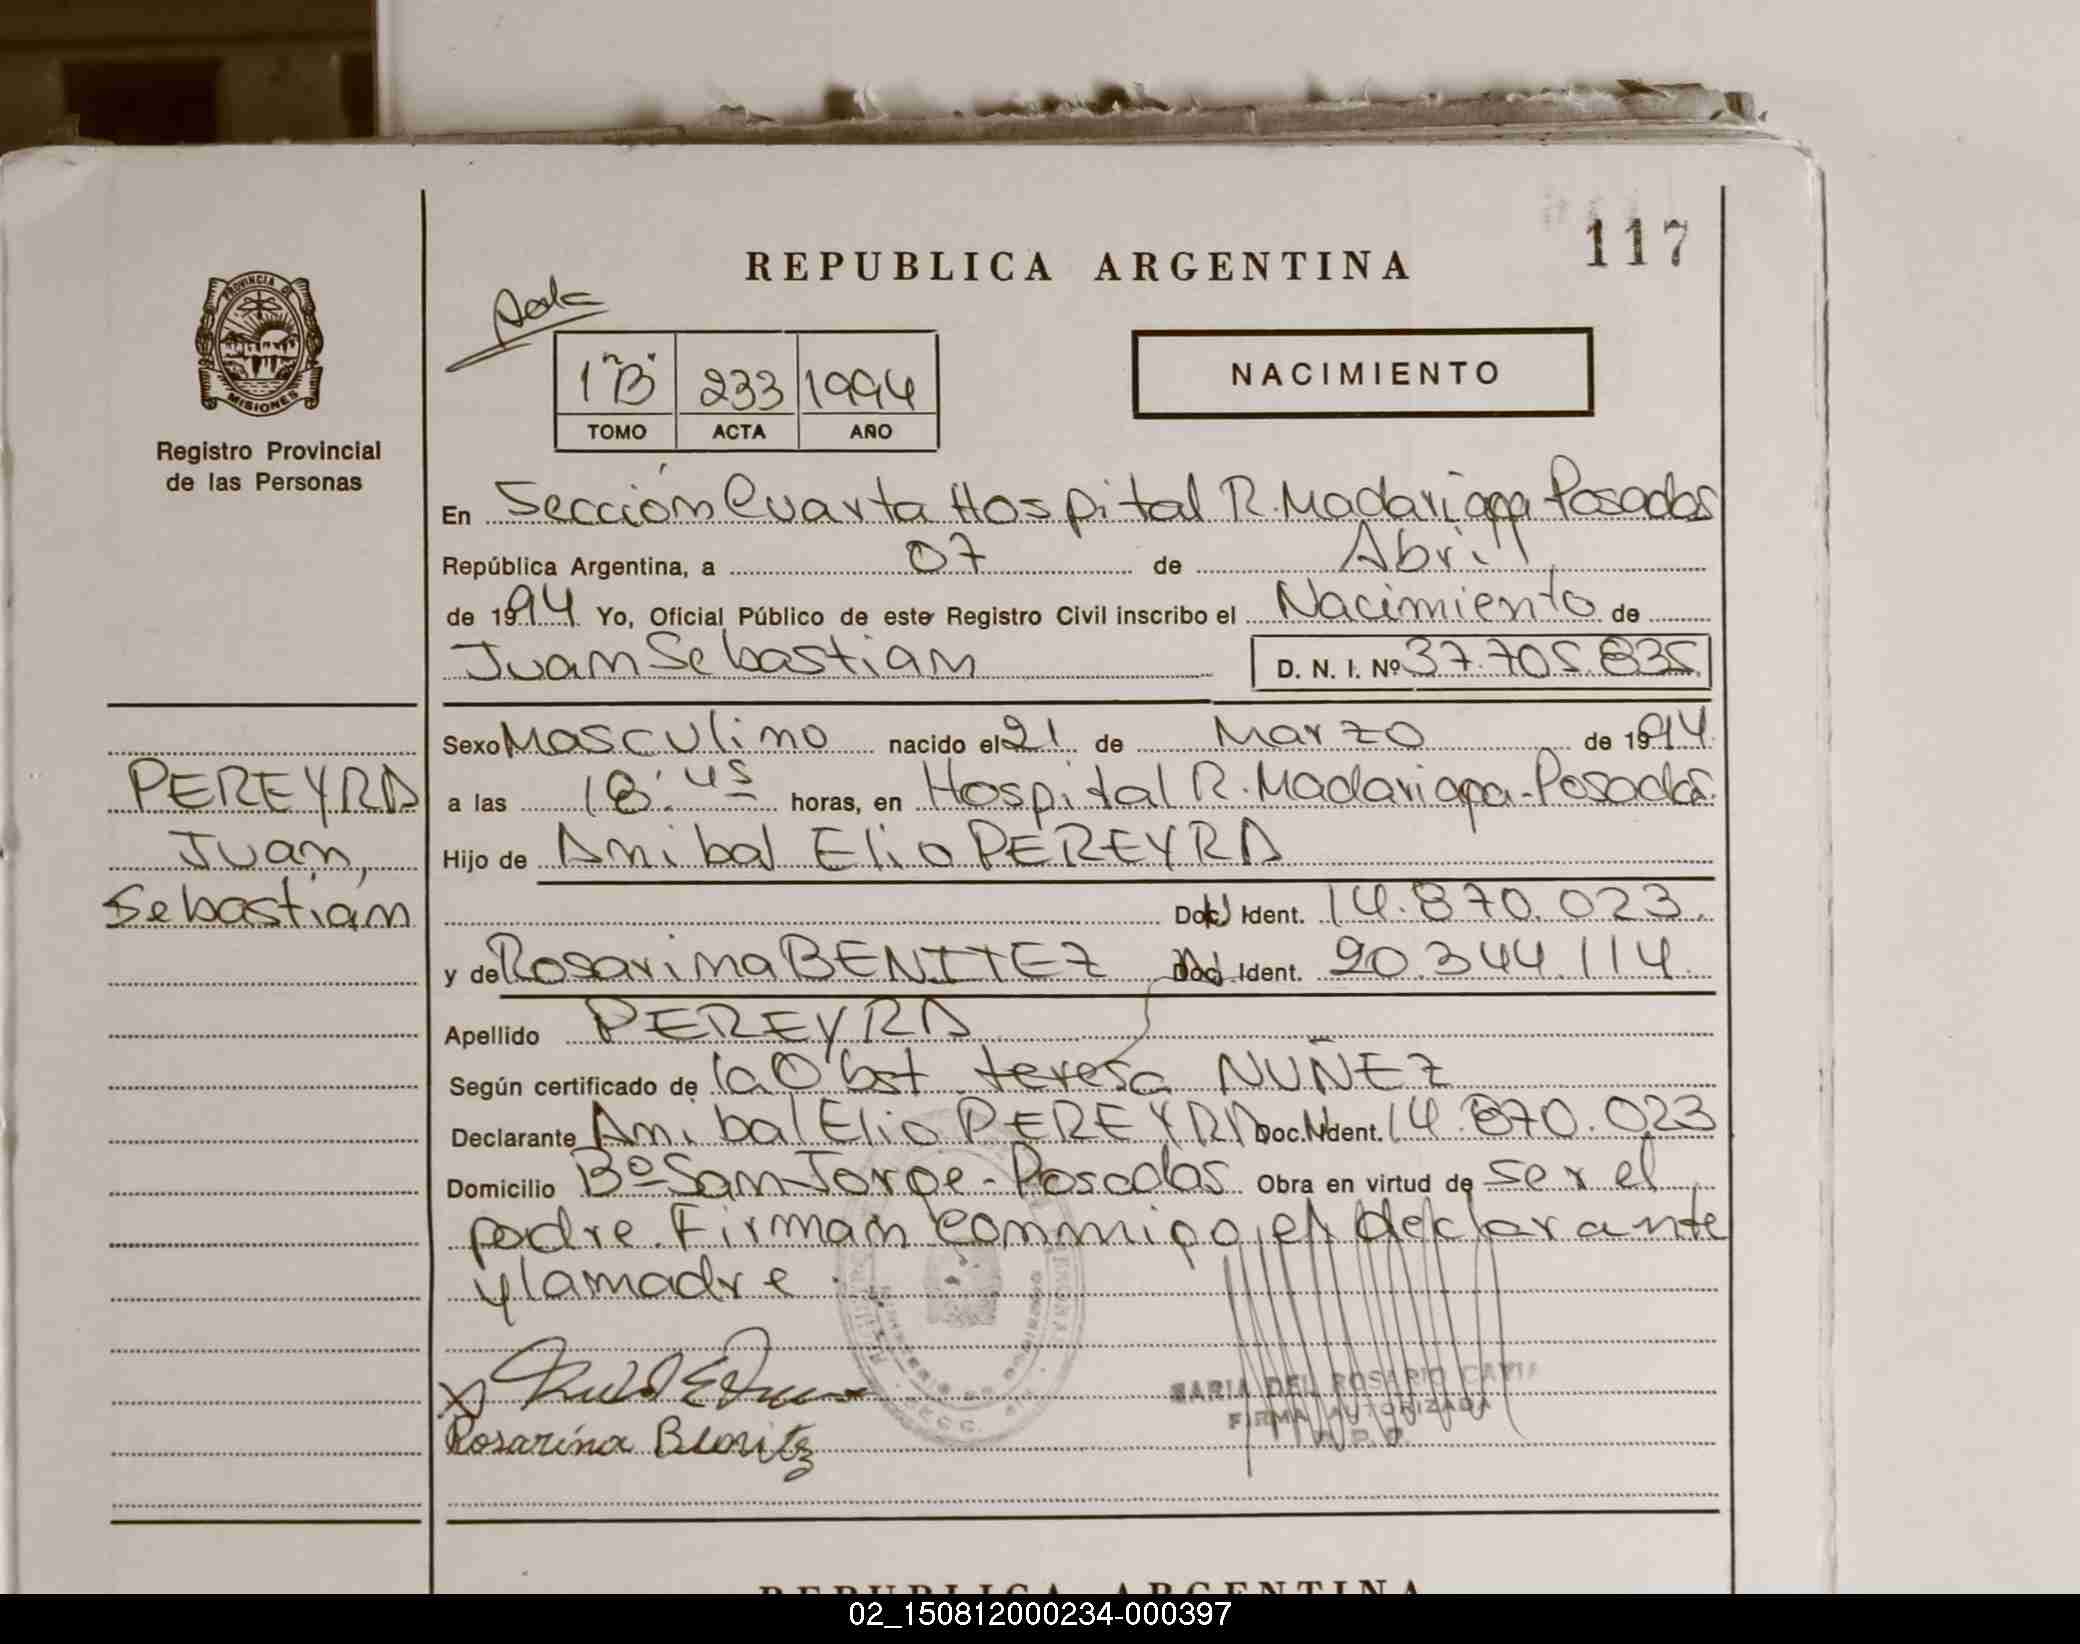 117
REPUBLICA ARGENTINA
PROVINCIA DE
MISIONES
Registro Provincial
de las Personas
1 "B" 233 1994
TOMO ACTA AÑO
NACIMIENTO
En Sección Cuarta Hospital R. Madariaga Posadas
República Argentina, a 07 de Abril
de 1994 Yo, Oficial Público de este Registro Civil inscribo el Nacimiento de
Juan Sebastián D. N. I. Nº 37.705.835
Sexo Masculino nacido el 21 de Marzo de 1994
a las 18:45 horas, en Hospital R. Madariaga - Posadas.
Hijo de Anibal Elio PEREYRA
Ident. 14.870.023.
y de Rosarina BENITEZ Ident. 20.344.114
Apellido PEREYRA
Según certificado de la Obst teresa NUÑEZ
Declarante Anibal Elio PEREYRA Doc. Ident. 14.870.023
Domicilio Bº San Jorge - Posadas Obra en virtud de ser el
padre. Firman conmigo, el declarante
y la madre.
PEREYRA
Juan,
Sebastián
Rosarina Benitez
MARIA DEL ROSARIO
FIRMA AUTORIZADA
REPUBLICA ARGENTINA
02_150812000234-000397